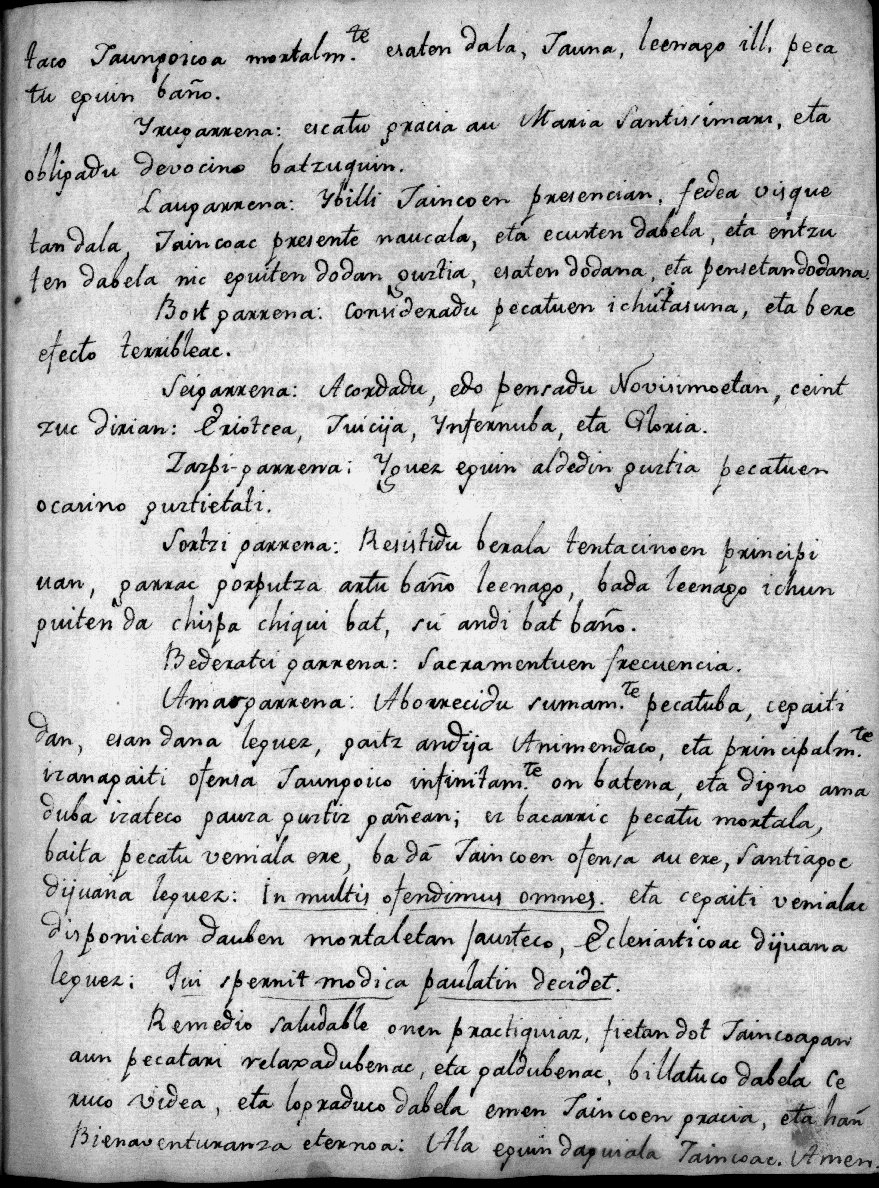 taco Jaungoicoa mortalm.te esaten dala, Jauna, leenago ill, peca
tu eguin baño.
Yrugarrena: escatu gracia au Maria Santissimari, eta
obligadu devocino batzuquin.
Laugarrena: Ybilli Jaincoen presencian, fedea visque
tan dala, Jaincoac presente naucala, eta ecusten dabela, eta entzu
ten dabela nic eguiten dodan gustia, esaten dodana, eta pensetan dodana.
Bost garrena: Consideradu pecatuen ichustasuna, eta bere
efecto terribleac.
Seigarrena: Acordadu, edo pensadu Novisimoetan, ceint
zuc dirian: Eriotcea, Juicija, Ynfernuba, eta Gloria.
Zazpi-garrena: Yguez eguin aldedin gustia pecatuen
ocasino gustietati.
Sortzi garrena: Resistidu berala tentacinoen principi
uan, garrac gorputza artu baño leenago, bada leenago ichun
guiten da chispa chiqui bat, su andi bat baño.
Bederatci garrena: Sacramentuen frecuencia.
Amargarrena: Aborrecidu sumam.te pecatuba, cegaiti
dan, esan dana leguez, gaitz andija Animendaco, eta principalm.te
izanagaiti ofensa Jaungoico infinitam.te on batena, eta digno ama
duba izateco gauza gustiz gañean; ez bacarric pecatu mortala,
baita pecatu veniala ere, ba dā Jaincoen ofensa au ere, Santiagoc
dijuana leguez: In multis ofendimus omnes. eta cegaiti venialac
disponietan dauben mortaletan jausteco, Eclesiasticoac dijuana
leguez: Qui spernit modica paulatin decidet.
Remedio saludable onen practiquiaz, fietan dot Jaincoagan
aun pecatari relaxadubenac, eta galdubenac, billatuco dabela Ce
ruco videa, eta logracuco dabela emen Jaincoen gracia, eta han
Bienaventuranza eternoa: Ala eguin daguiala Jaincoac. Amen.